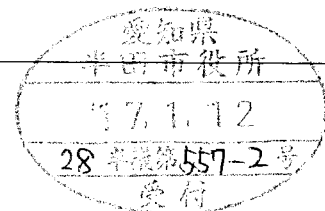 愛知県
半田市役所
17.1.12
28半議第557-2号
受付